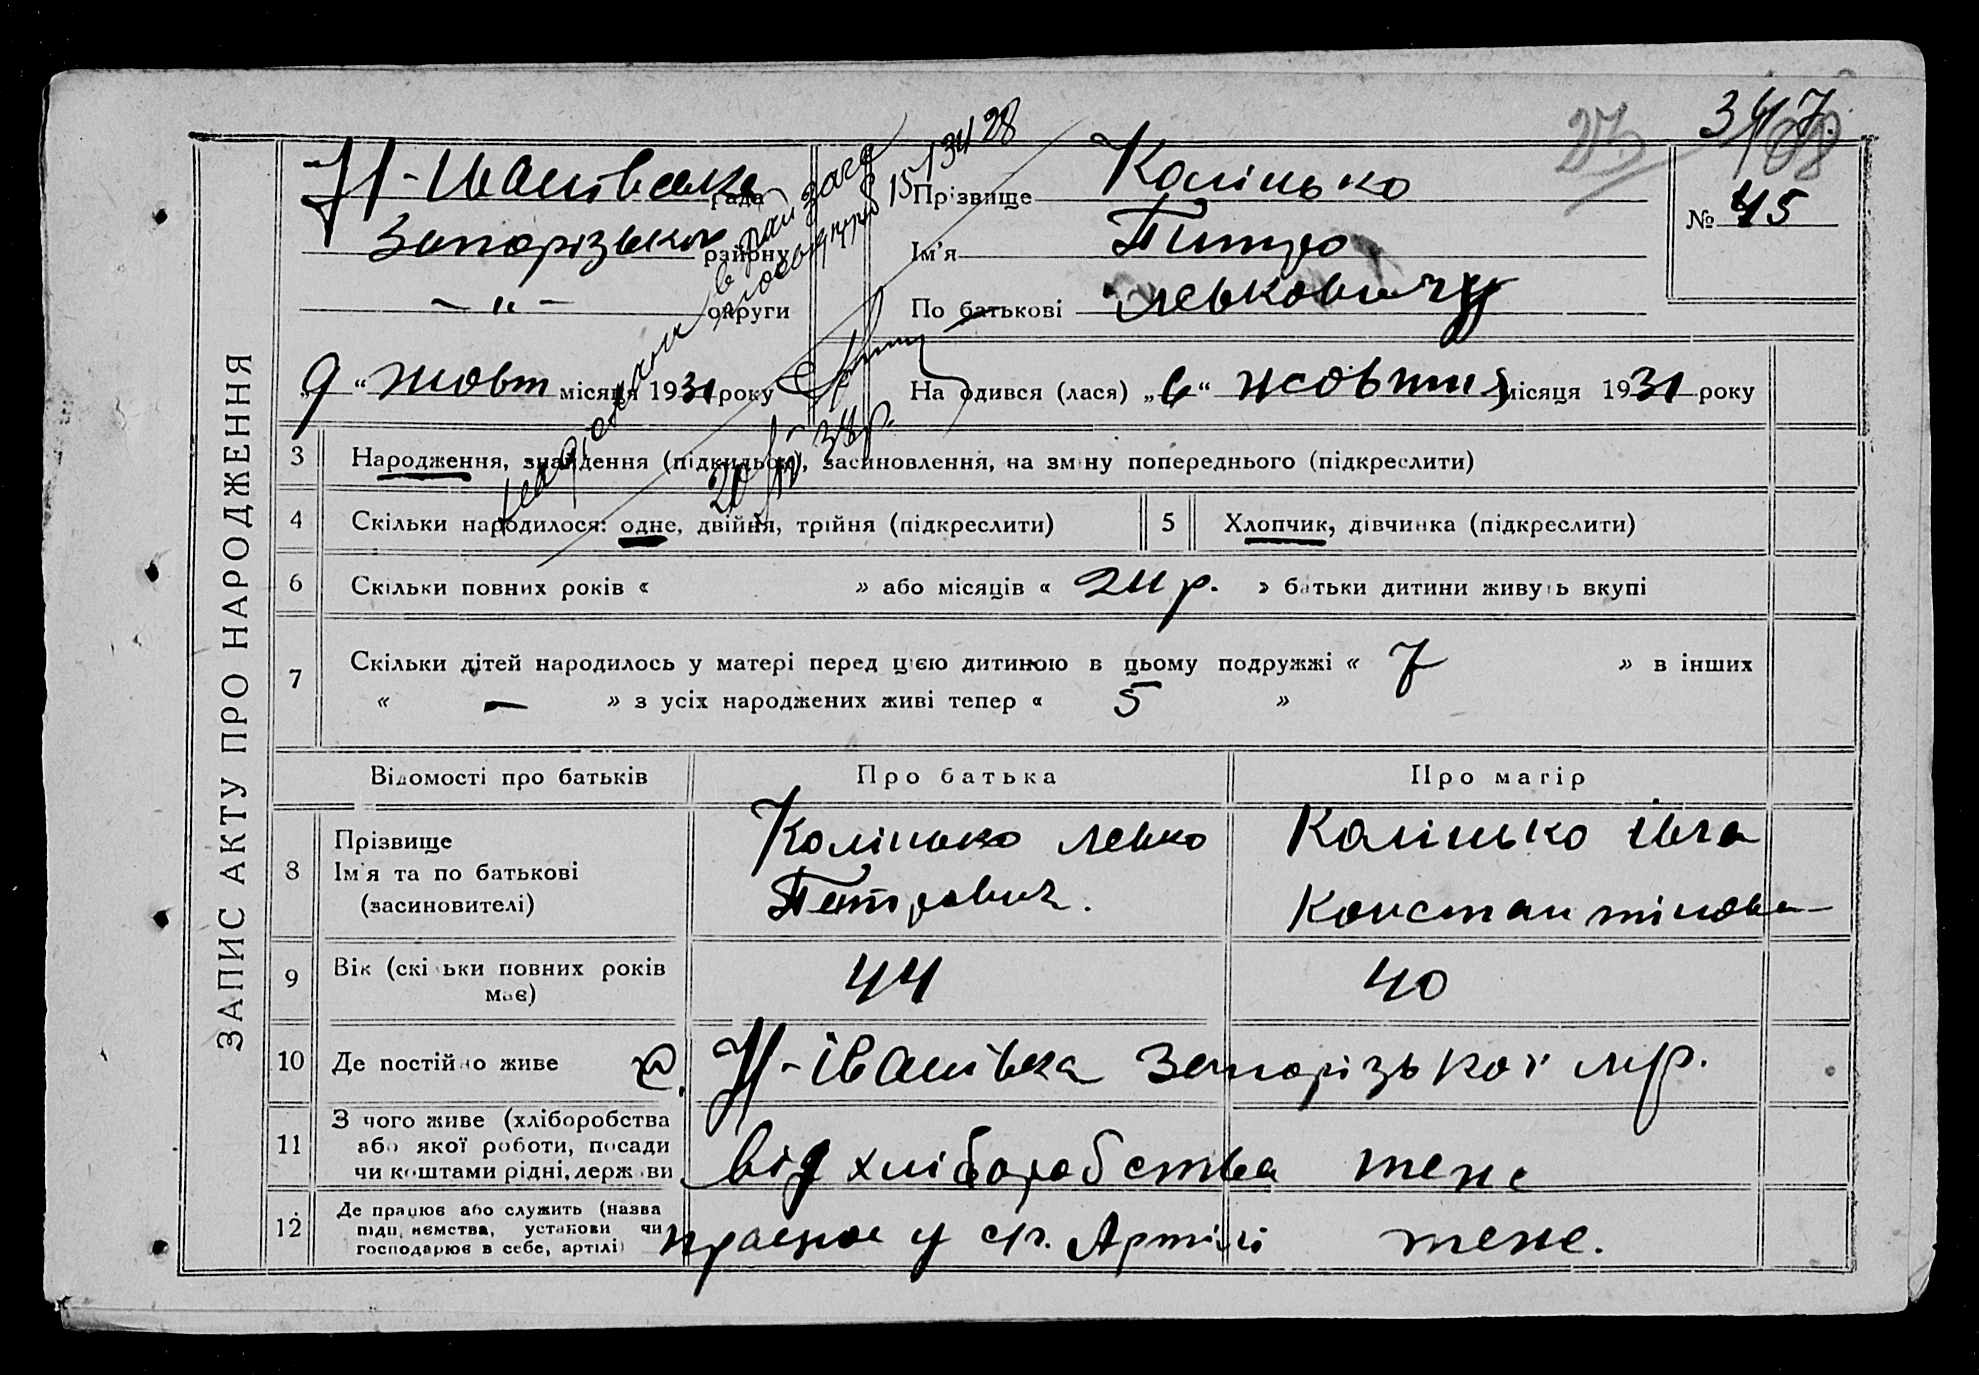 347.
№ 45
ЗАПИС АКТУ ПРО НАРОДЖЕННЯ
Н-Іванівська рада
Запорізьког району
— „ — округи
Прізвище Калінько
Ім'я Питро
По батькові Левкович
9 “ жовт місяця 1931 року
На одився (лася) „ 6 “ жовтня місяця 1931 року
3 Народження, знайдення (підкидьок), засиновлення, на зміну попереднього (підкреслити)
4 Скільки народилося: одне, двійня, трійня (підкреслити) 5 Хлопчик, дівчинка (підкреслити)
6 Скільки повних років « » або місяців « 24 р. » батьки дитини живуть вкупі
7 Скільки дітей народилось у матері перед цією дитиною в цьому подружжі « 7 » в інших
« — » з усіх народжених живі тепер « 5 »
Відомості про батьків Про батька Про матір
8 Прізвище Ім'я та по батькові (засиновителі)
Калінько Левко Петрович.
Калинько Івга Константінова
9 Вік (скільки повних років має) 44 40
10 Де постійно живе с. Н-Іванівка Запорізької м/р.
11 З чого живе (хліборобства або якої роботи, посади чи коштами рідні, держави
від хліборобства теж
12 Де працює або служить (назва підприємства, установи чи господарює в себе, артілі)
працює у с/г. Артілі теж.
15/I 34 28
20/IV 38р.